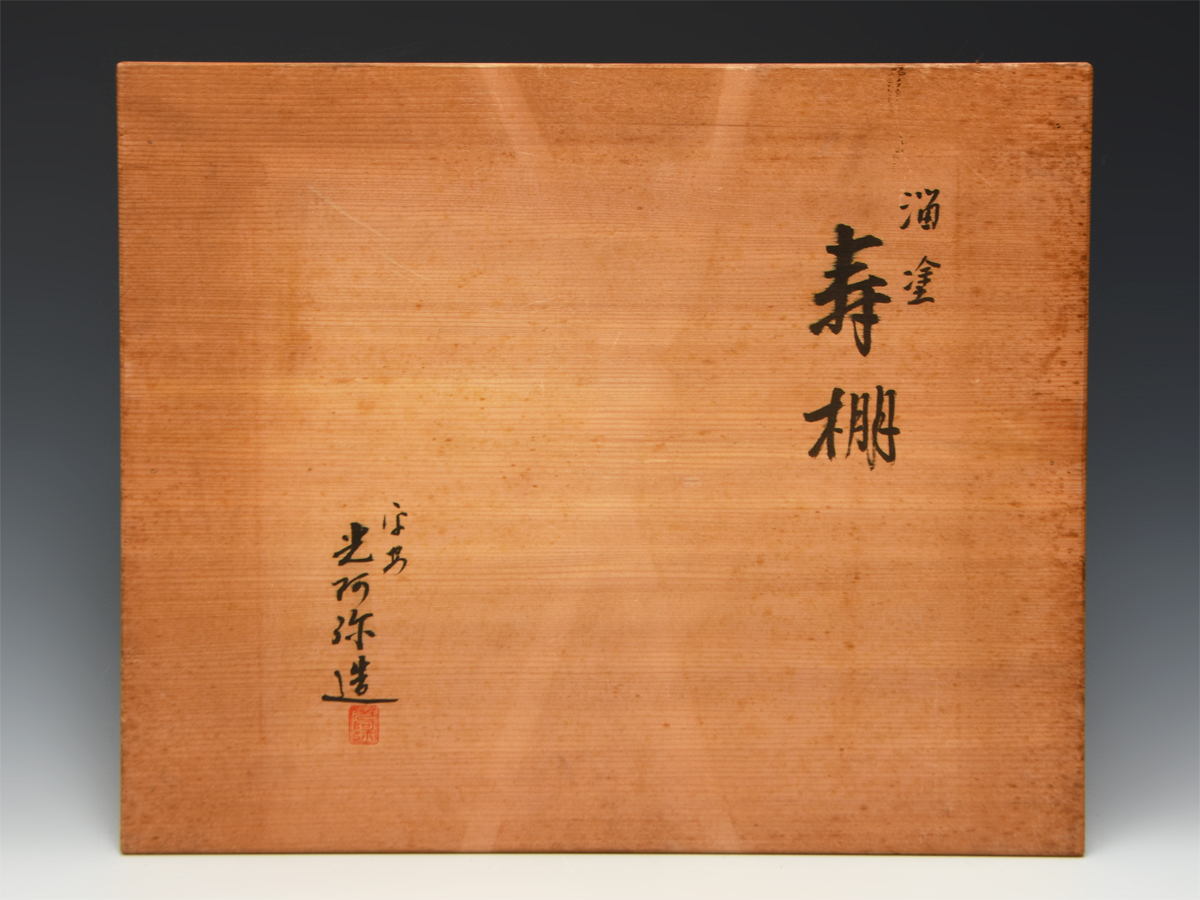 溜塗
寿棚
平安
光阿弥造